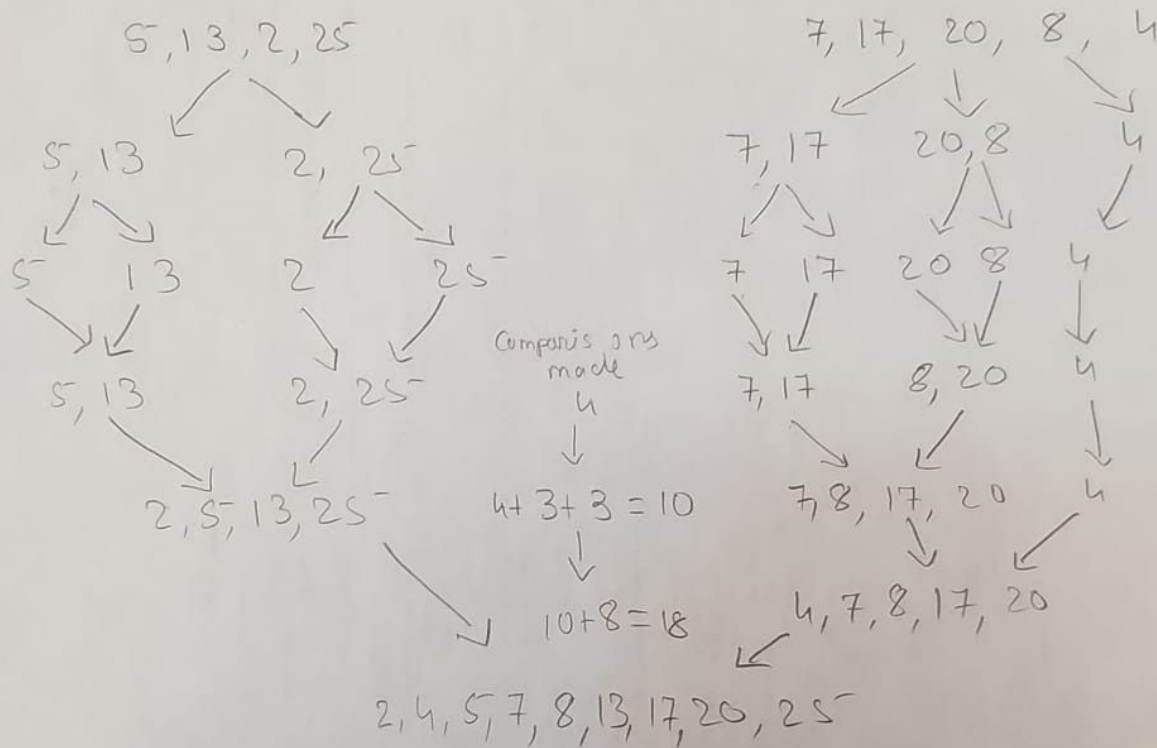 5, 13, 2, 25 7, 17, 20, 8, 4
5, 13 2, 25 7, 17 20, 8 4
5 13 2 25 7 17 20 8 4
Comparisons
made
5, 13 2, 25 4 7, 17 8, 20 4
2, 5, 13, 25 4+3+3=10 7, 8, 17, 20 4
10+8=18 4, 7, 8, 17, 20
2, 4, 5, 7, 8, 13, 17, 20, 25